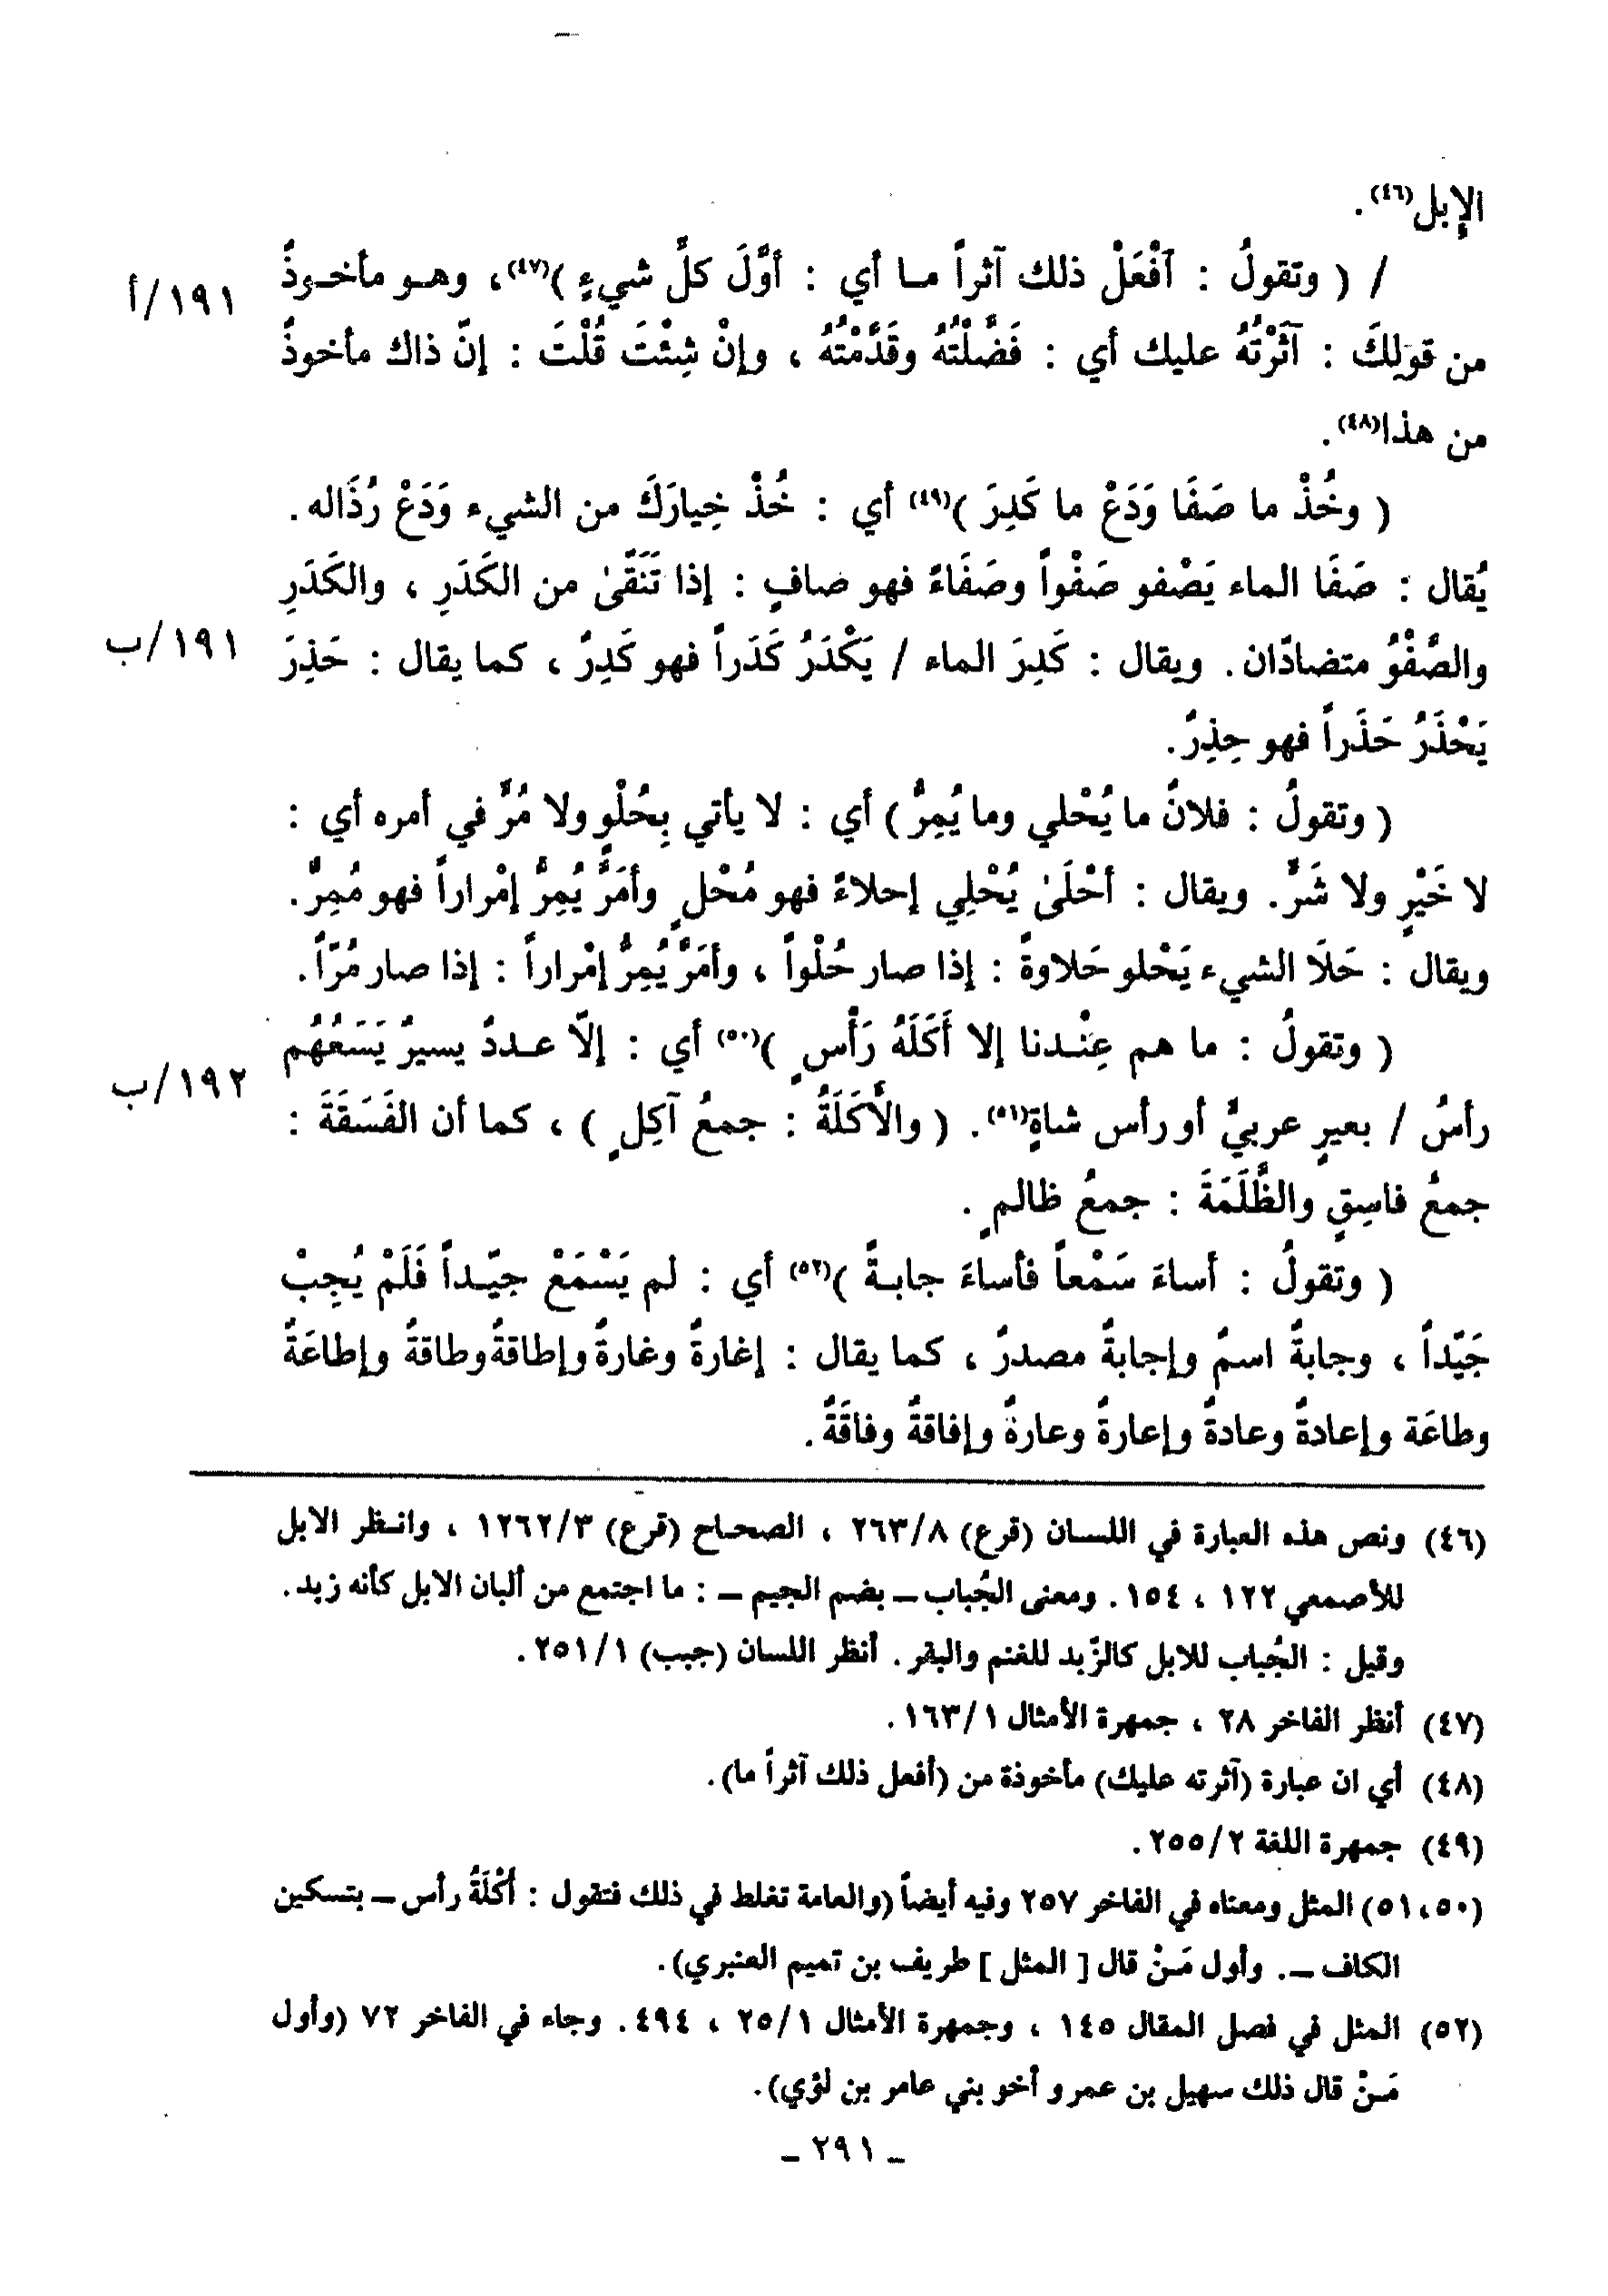 الإبل(٤٦).
/ ( وتقولُ : آفْعَلْ ذلك آثراً مـا أي : أوَّلَ كلِّ شيءٍ )(٤٧)، وهـو مأخـوذٌ
١٩١/أ
من قولِكَ : آثَرْتُهُ عليك أي : فَضَّلْتُهُ وقَدَّمْتُهُ ، وإنْ شِئْتَ قُلْتَ : إنّ ذاك مأخوذٌ
من هذا(٤٨).
( وخُذْ ما صَفَا وَدَعْ ما كَدِرَ )(٤٩) أي : خُذْ خِيارَكَ من الشيء وَدَعْ رُذَاله.
يُقال : صَفَا الماء يَصْفو صَفْواً وصَفَاءً فهو صافٍ : إذا تَنَقَّىٰ من الكَدَرِ ، والكَدَرِ
والصَّفْوُ متضادّان. ويقال : كَدِرَ الماء / يَكْدَرُ كَدَراً فهو كَدِرٌ ، كما يقال : حَذِرَ
١٩١/ب
يَحْذَرُ حَذَراً فهو حِذِرٌ.
( وتقولُ : فلانٌ ما يُحْلي وما يُمِرُّ ) أي : لا يأتي بِحُلْوٍ ولا مُرٍّ في أمره أي :
لا خَيْرٍ ولا شَرٍّ. ويقال : أحْلَىٰ يُحْلِي إحلاءً فهو مُحْلٍ وأمَرَّ يُمِرُّ إمْراراً فهو مُمِرٌّ.
ويقال : حَلَا الشيء يَحْلو حَلاوةً : إذا صار حُلْواً ، وأمَرَّ يُمِرُّ إمْراراً : إذا صار مُرّاً.
( وتقولُ : ما هم عِنْـدنا إلا أَكَلَةُ رَأْسٍ )(٥٠) أي : إلّا عـددٌ يسيرٌ يَسَعُهُم
١٩٢/ب
رأسُ / بعيرٍ عربيٍّ أو رأس شاةٍ(٥١). ( والأَكَلَةُ : جمعُ آكِلٍ ) ، كما أن الفَسَقَةَ :
جمعُ فاسِقٍ والظَّلَمَةَ : جمعُ ظالمٍ.
( وتقولُ : أساءَ سَمْعاً فأساءَ جابـةً )(٥٢) أي : لم يَسْمَعْ جيّـداً فَلَمْ يُجِبْ
جَيّداً ، وجابةٌ اسمٌ وإجابةٌ مصدرٌ ، كما يقال : إغارةٌ وغارةٌ وإطاقةٌ وطاقةٌ وإطاعَةٌ
وطاعَة وإعادةٌ وعادةٌ وإعارةٌ وعارةٌ وإفاقةٌ وفاقَةٌ.
(٤٦) ونص هذه العبارة في اللسـان (قرع) ٢٦٣/٨ ، الصحـاح (قرع) ١٢٦٢/٣ ، وانـظر الابل
للأصمعي ١٢٢ ، ١٥٤. ومعنى الجُباب ـ بضم الجيم ـ : ما اجتمع من ألبان الابل كأنه زبد.
وقيل : الجُباب للابل كالزّبد للغنم والبقر. أنظر اللسان (جبب) ٢٥١/١.
(٤٧) أنظر الفاخر ٢٨ ، جمهرة الأمثال ١٦٣/١.
(٤٨) أي ان عبارة (آثرته عليك) مأخوذة من (أفعل ذلك آثراً ما).
(٤٩) جمهرة اللغة ٢٥٥/٢.
(٥٠، ٥١) المثل ومعناه في الفاخر ٢٥٧ وفيه أيضاً (والعامة تغلط في ذلك فتقول : أُكْلَةُ رأس ـ بتسكين
الكاف ـ. وأول مَـنْ قال [ المثل ] طريف بن تميم العنبري).
(٥٢) المثل في فصل المقال ١٤٥ ، وجمهرة الأمثال ٢٥/١ ، ٤٩٤. وجاء في الفاخر ٧٢ (وأول
مَـنْ قال ذلك سهيل بن عمرو أخو بني عامر بن لؤي).
ـ ٢٩١ ـ